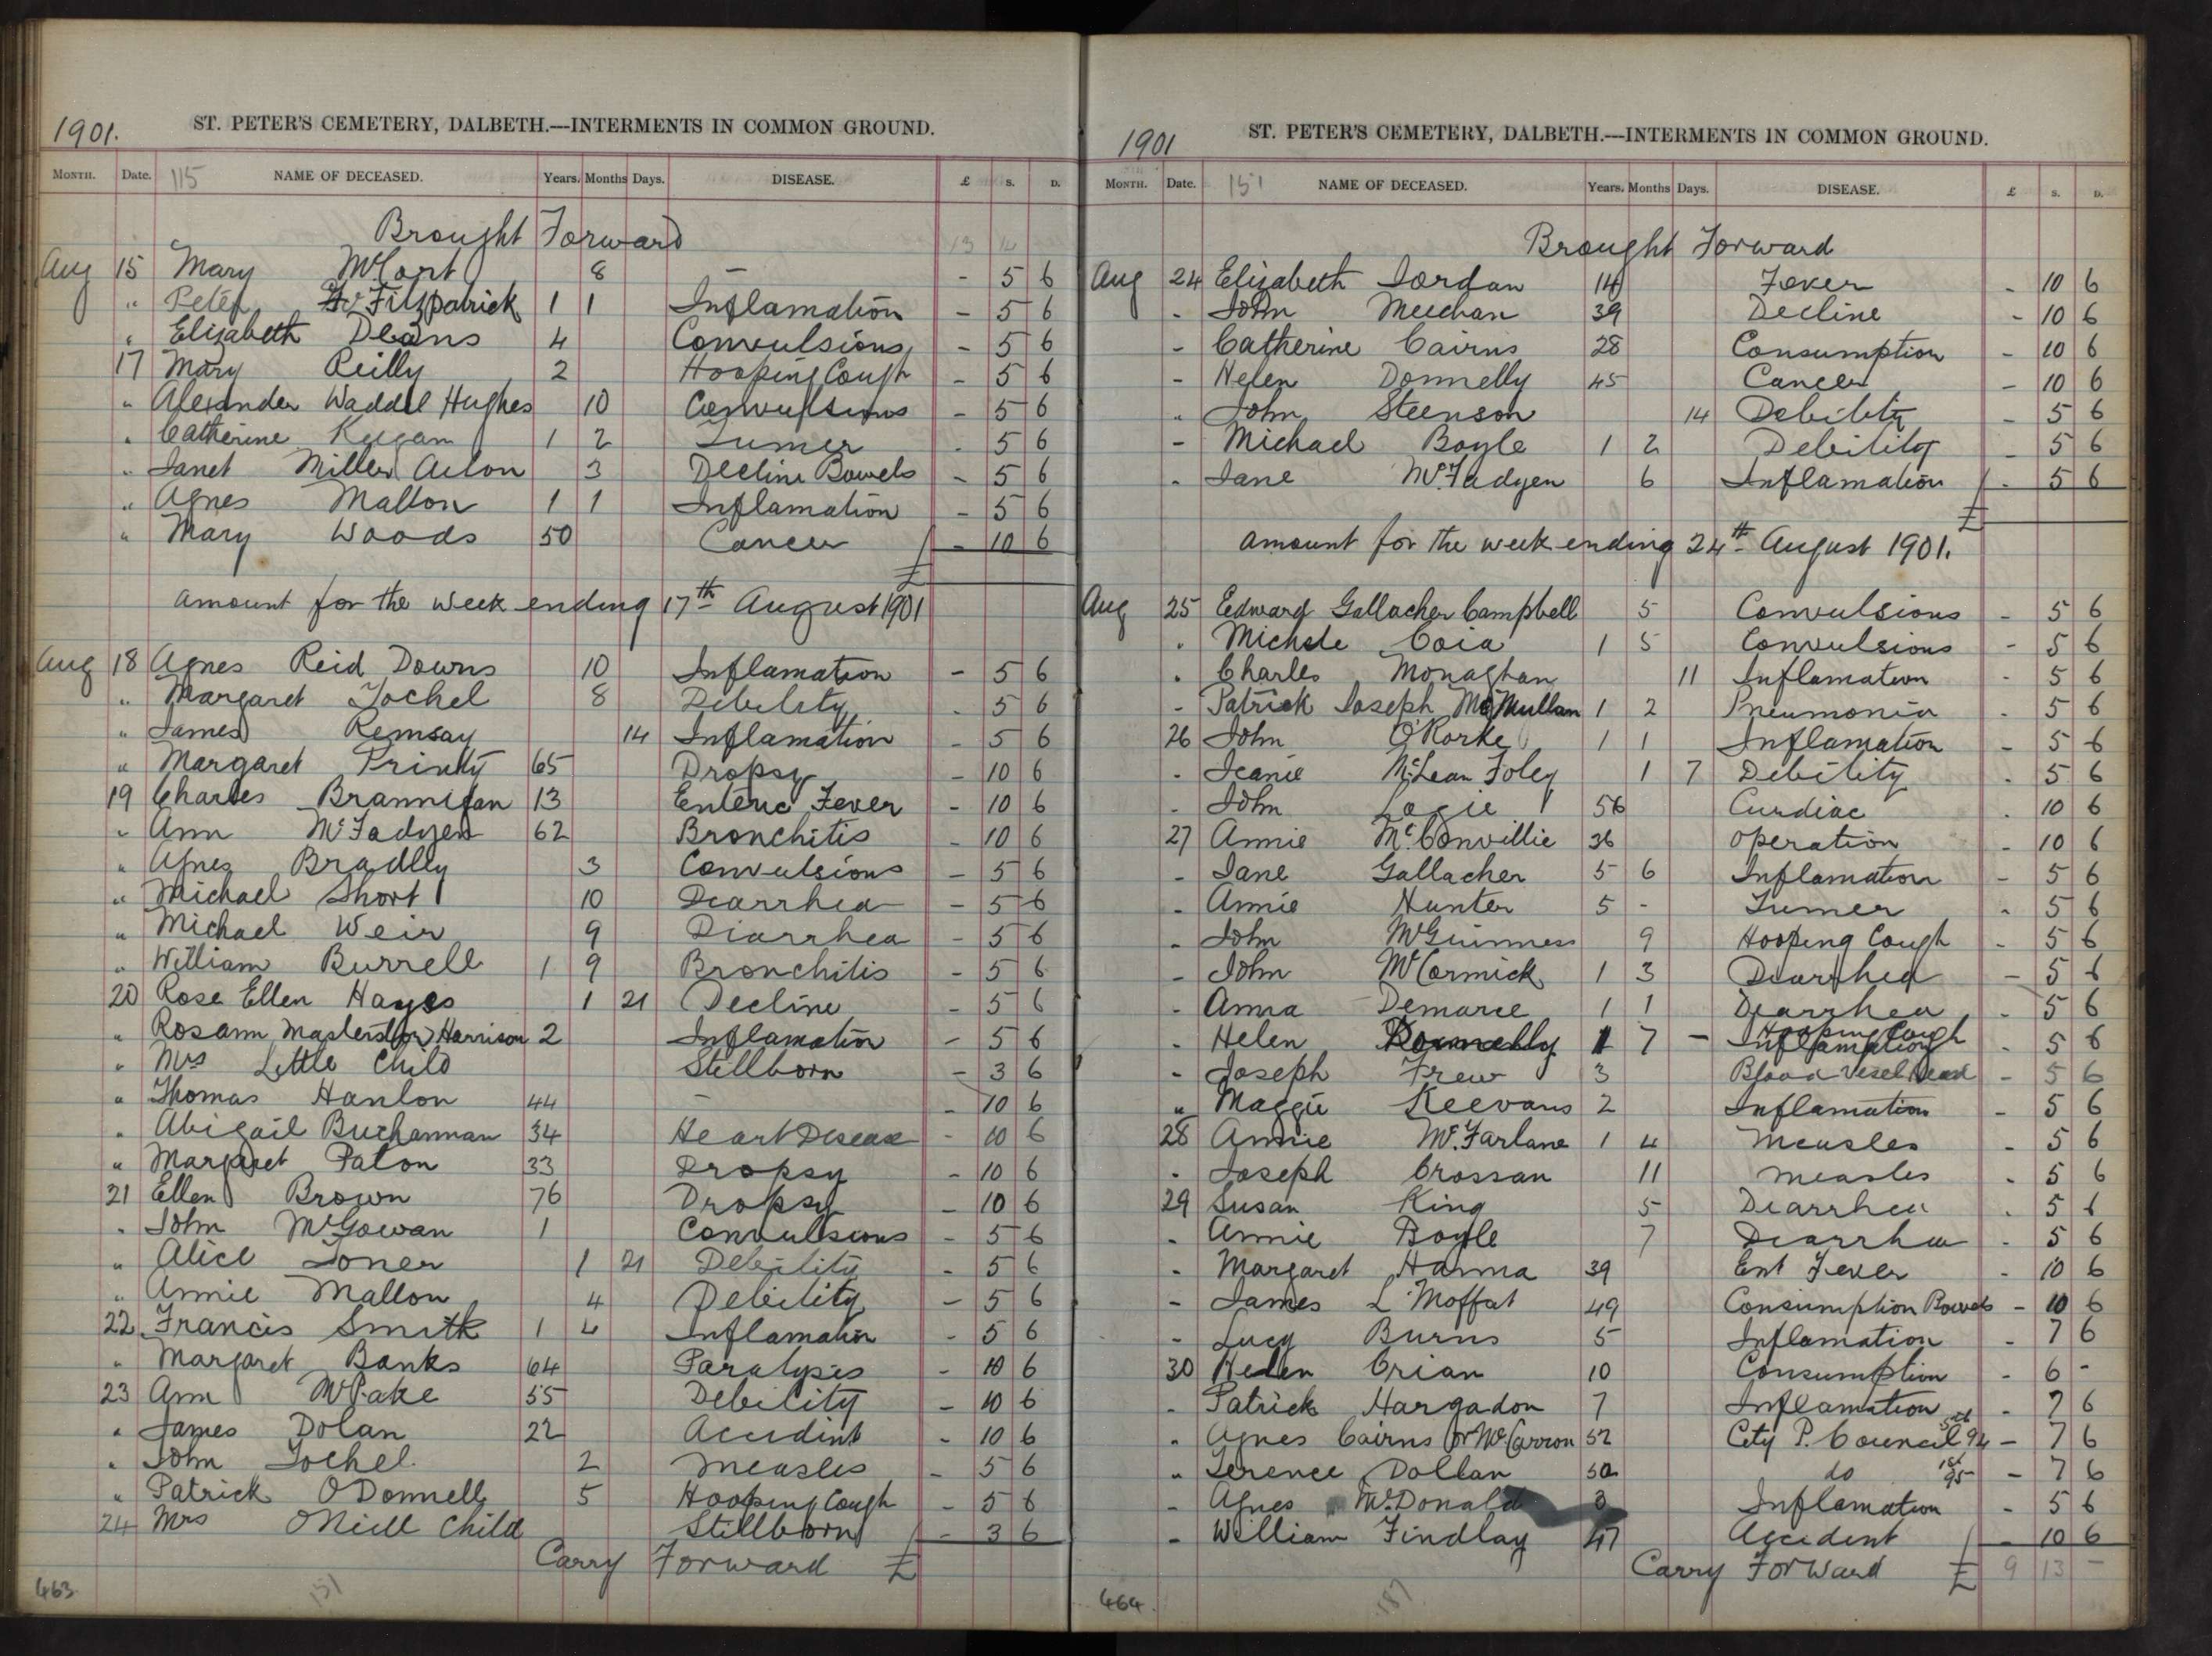 1901.
ST. PETER'S CEMETERY, DALBETH.—INTERMENTS IN COMMON GROUND.
MONTH. Date. 115 NAME OF DECEASED. Years. Months Days. DISEASE. £ S. D.
Brought Forward 13 14
Aug 15 Mary McCort 8 – - 5 6
" Peter Fitzpatrick 1 1 Inflamation - 5 6
" Elizabeth Deans 4 Convulsions - 5 6
17 Mary Reilly 2 Hooping Cough - 5 6
" Alexander Waddel Hughes 10 Convulsions - 5 6
" Catherine Keegan 1 2 Tumer - 5 6
" Janet Miller 3 Decline Bowels - 5 6
" Agnes Mallon 1 1 Inflamation - 5 6
" Mary Woods 50 Cancer - 10 6
£
amount for the week ending 17th August 1901
Aug 18 Agnes Reid Downs 10 Inflamation - 5 6
" Margaret Jochel 8 Debility - 5 6
" James Remsay 14 Inflamation - 5 6
" Margaret Printy 65 Dropsy - 10 6
19 Charles Brannigan 13 Enteric Fever - 10 6
" Ann McFadyen 62 Bronchitis - 10 6
" Agnes Bradlly 3 Convulsions - 5 6
" Michael Short 10 Diarrhea - 5 6
" Michael Weir 9 Diarrhea - 5 6
" William Burrell 1 9 Bronchitis - 5 6
20 Rose Ellen Hayes 1 21 Decline - 5 6
" Rosann Masterston or Harrison 2 Inflamation - 5 6
" Mrs Little Child Stillborn - 3 6
" Thomas Hanlon 44 – - 10 6
" Abigail Buchannan 34 Heart Disease - 10 6
" Margaret Paton 33 Dropsy - 10 6
21 Ellen Brown 76 Dropsy - 10 6
" John McGowan 1 Convulsions - 5 6
" Alice Toner 1 21 Debility - 5 6
" Annie Mallon 4 Debility - 5 6
22 Francis Smith 1 4 Inflamation - 5 6
" Margaret Banks 64 Paralysis - 10 6
23 Ann McPake 55 Debility - 10 6
" James Dolan 22 Accident - 10 6
" John Jochel. 2 Measles - 5 6
" Patrick ODonnell 5 Hooping Cough - 5 6
24 Mrs ONeill Child Stillborn - 3 6
Carry Forward £
463 151
1901
ST. PETER'S CEMETERY, DALBETH.—INTERMENTS IN COMMON GROUND.
MONTH. Date. 151 NAME OF DECEASED. Years. Months Days. DISEASE. £ S. D.
Brought Forward
Aug 24 Elizabeth Jordan 14 Fever - 10 6
- John Meechan 39 Decline - 10 6
- Catherine Cairns 28 Consumption - 10 6
- Helen Donnelly 45 Cancer - 10 6
" John Steenson 14 Debility - 5 6
- Michael Boyle 1 2 Debility - 5 6
- Jane McFadyen 6 Inflamation - 5 6
£
amount for the week ending 24th August 1901.
Aug 25 Edward Gallacher Campbell 5 Convulsions - 5 6
" Michele Coia 1 5 Convulsions - 5 6
" Charles Monaghan 11 Inflamation - 5 6
- Patrick Joseph McMullan 1 2 Pneumonia - 5 6
26 John O'Rorke 1 1 Inflamation - 5 6
- Jeanie McLean Foley 1 7 Debility - 5 6
- John Logie 56 Curdiac - 10 6
27 Annie McConvillie 36 operation - 10 6
- Jane Gallacher 5 6 Inflamation - 5 6
- Annie Hunter 5 - Tumer - 5 6
- John McGuinness 9 Hooping Cough - 5 6
- John McCormick 1 3 Diarrhea - 5 6
- Anna Demarce 1 1 Diarrhea - 5 6
- Helen Donnelly 1 7 – Hooping Cough Inflamation - 5 6
- Joseph Frew 3 Blood Vesel - 5 6
" Maggie Keevans 2 Inflamation - 5 6
28 Annie McFarlane 1 4 Measles - 5 6
- Joseph Crossan 11 Measles - 5 6
29 Susan King 5 Diarrhea - 5 6
- Annie Boyle 7 Diarrhea - 5 6
- Margaret Hanna 39 Ent Fever - 10 6
- James L Moffat 49 Consumption Bowels - 10 6
- Lucy Burns 5 Inflamation - 7 6
30 Helen Crian 10 Consumption - 6 -
- Patrick Hargadon 7 Inflamation - 7 6
" Agnes Cairns or McCarron 52 City P. Council 94 - 7 6
" Terence Dollan 50 do 95 - 7 6
- Agnes McDonald 3 Inflamation - 5 6
- William Findlay 47 Accident - 10 6
Carry Forward £ 9 13 -
464 187